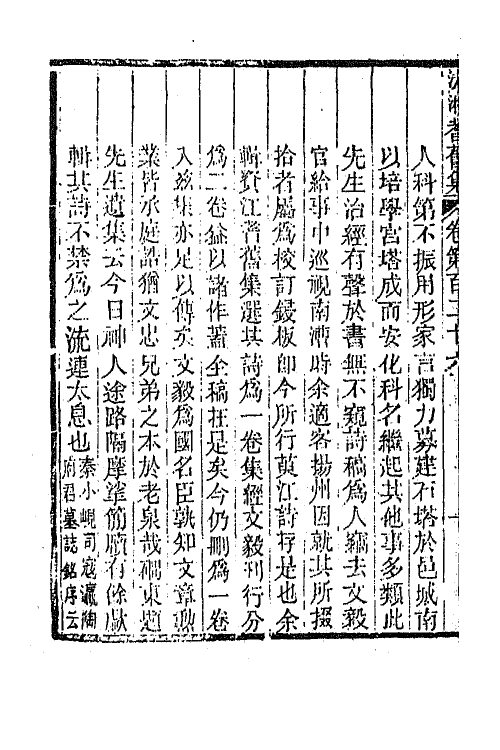 沅湘耆舊集 卷第百二十六
人科第不振用形家言獨力募建石塔於邑城南
以培學宮塔成而安化科名繼起其他事多類此
先生治經有聲於書無不窺詩稿為人竊去文毅
官給事中巡視南漕時余適客揚州因就其所掇
拾者屬為校訂鋟板卽今所行萸江詩存是也余
輯資江耆舊集選其詩為一卷集經文毅刊行分
為二卷益以諸作蓋全稿在是矣今仍刪為一卷
入茲集亦足以傳矣文毅為國名臣孰知文章勳
業皆承庭誥猶文忠兄弟之本於老泉哉磵東題
先生遺集云今日神人途路隔摩挲簡牘有餘歔
輯其詩不禁為之沇連太息也秦小峴司寇瀛陶
府君墓誌銘序云